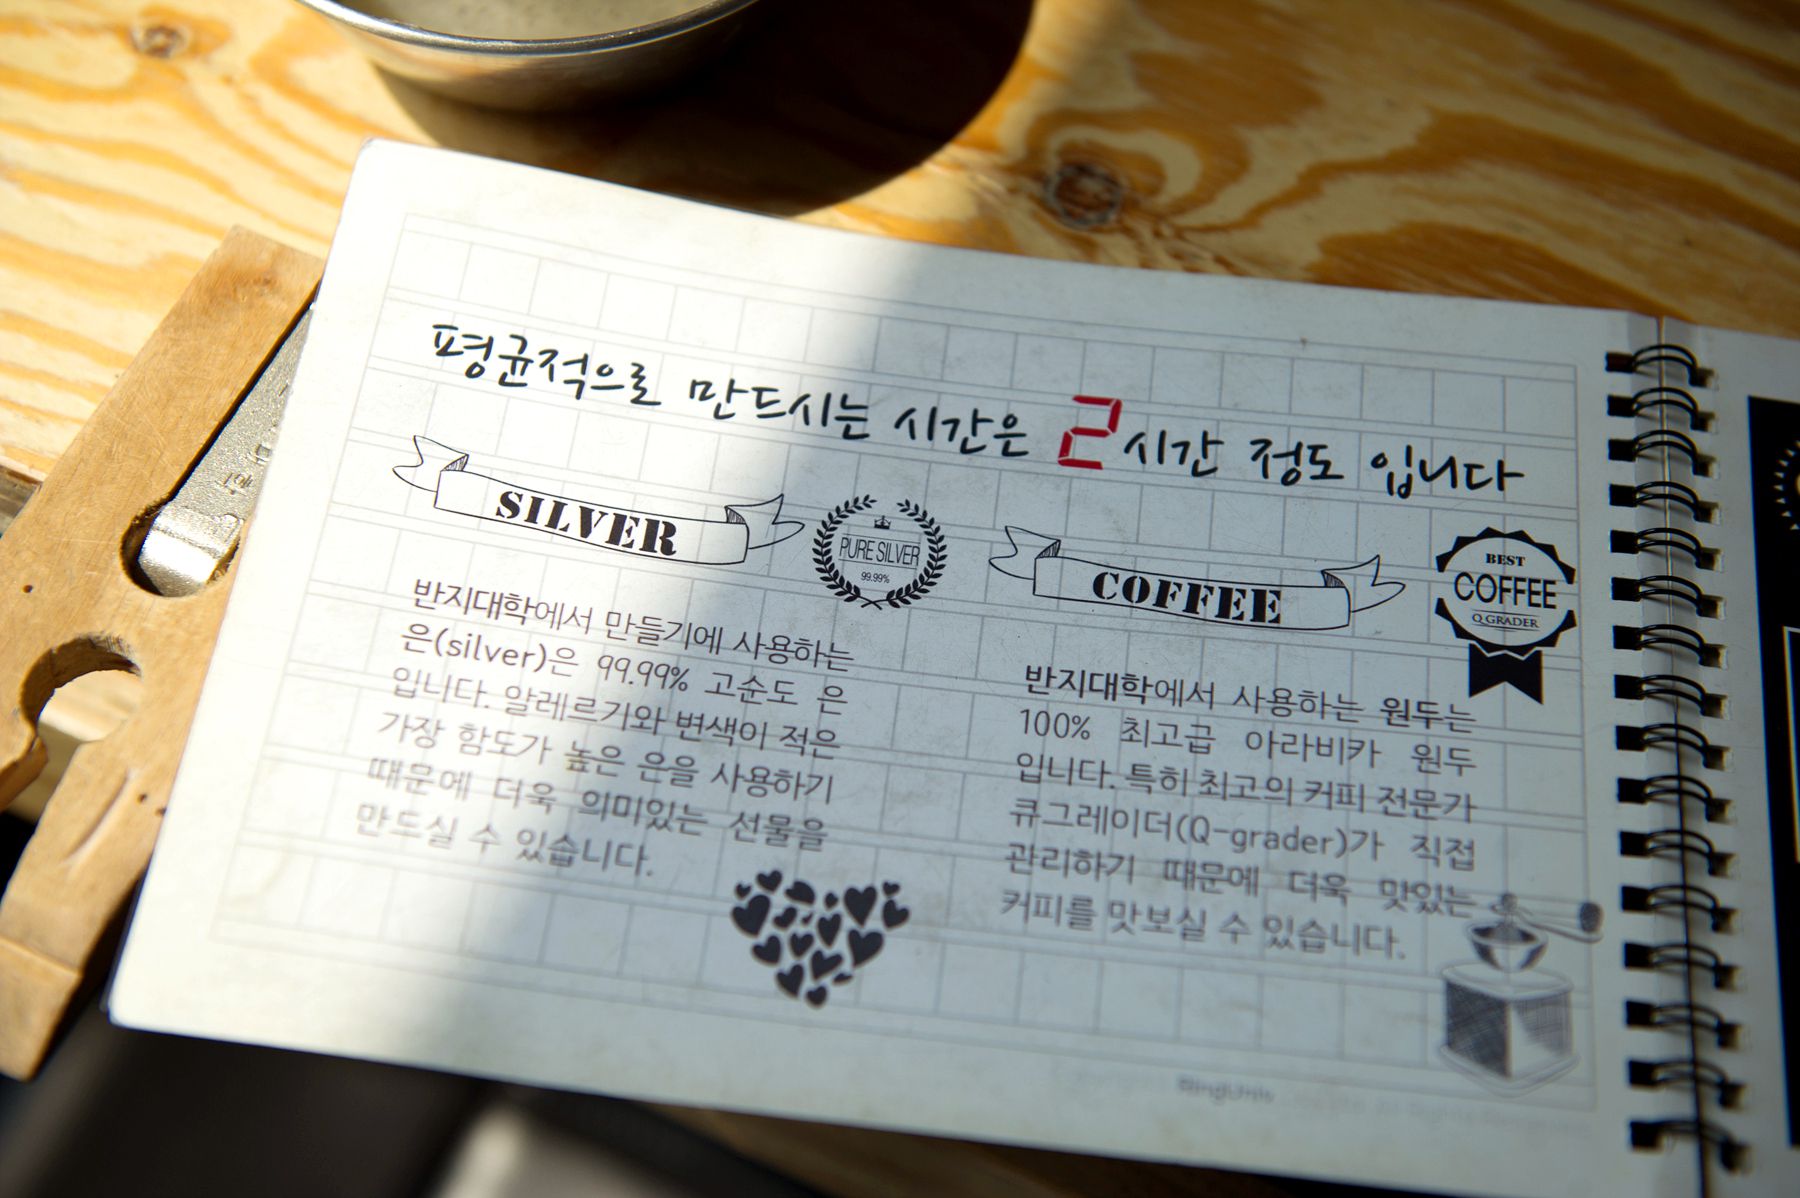 평균적으로 만드시는 시간은 2시간 정도 입니다
SILVER
PURE SILVER
99.99%
반지대학에서 만들기에 사용하는
은(silver)은 99.99% 고순도 은
입니다. 알레르기와 변색이 적은
가장 함도가 높은 은을 사용하기
때문에 더욱 의미있는 선물을
만드실 수 있습니다.
COFFEE
BEST
COFFEE
Q GRADER
반지대학에서 사용하는 원두는
100% 최고급 아라비카 원두
입니다. 특히 최고의 커피 전문가
큐그레이더(Q-grader)가 직접
관리하기 때문에 더욱 맛있는
커피를 맛보실 수 있습니다.
RingUniv